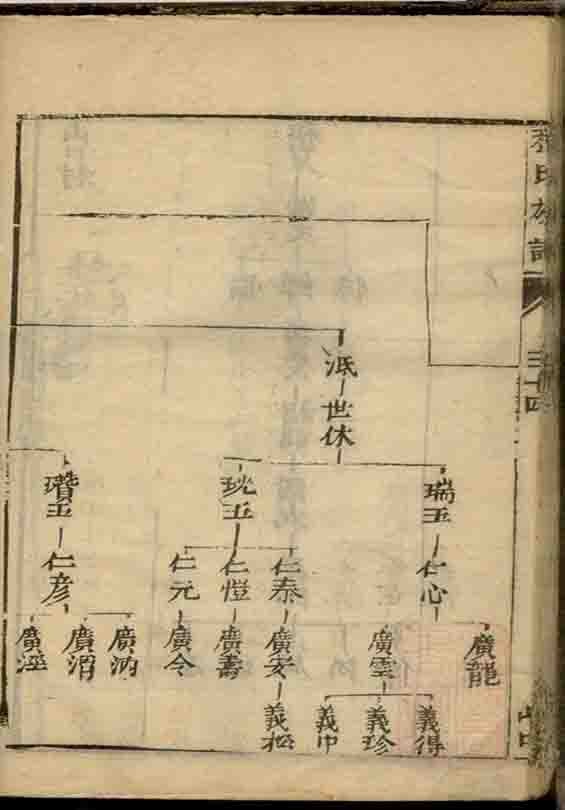 氏族譜
泜
世休
瑞玉
珖玉
瓚玉
仁心
仁泰
仁愷
仁元
仁彥
廣龍
廣雲
廣安
廣壽
廣令
廣汭
廣渭
廣涇
義得
義珍
義中
義松